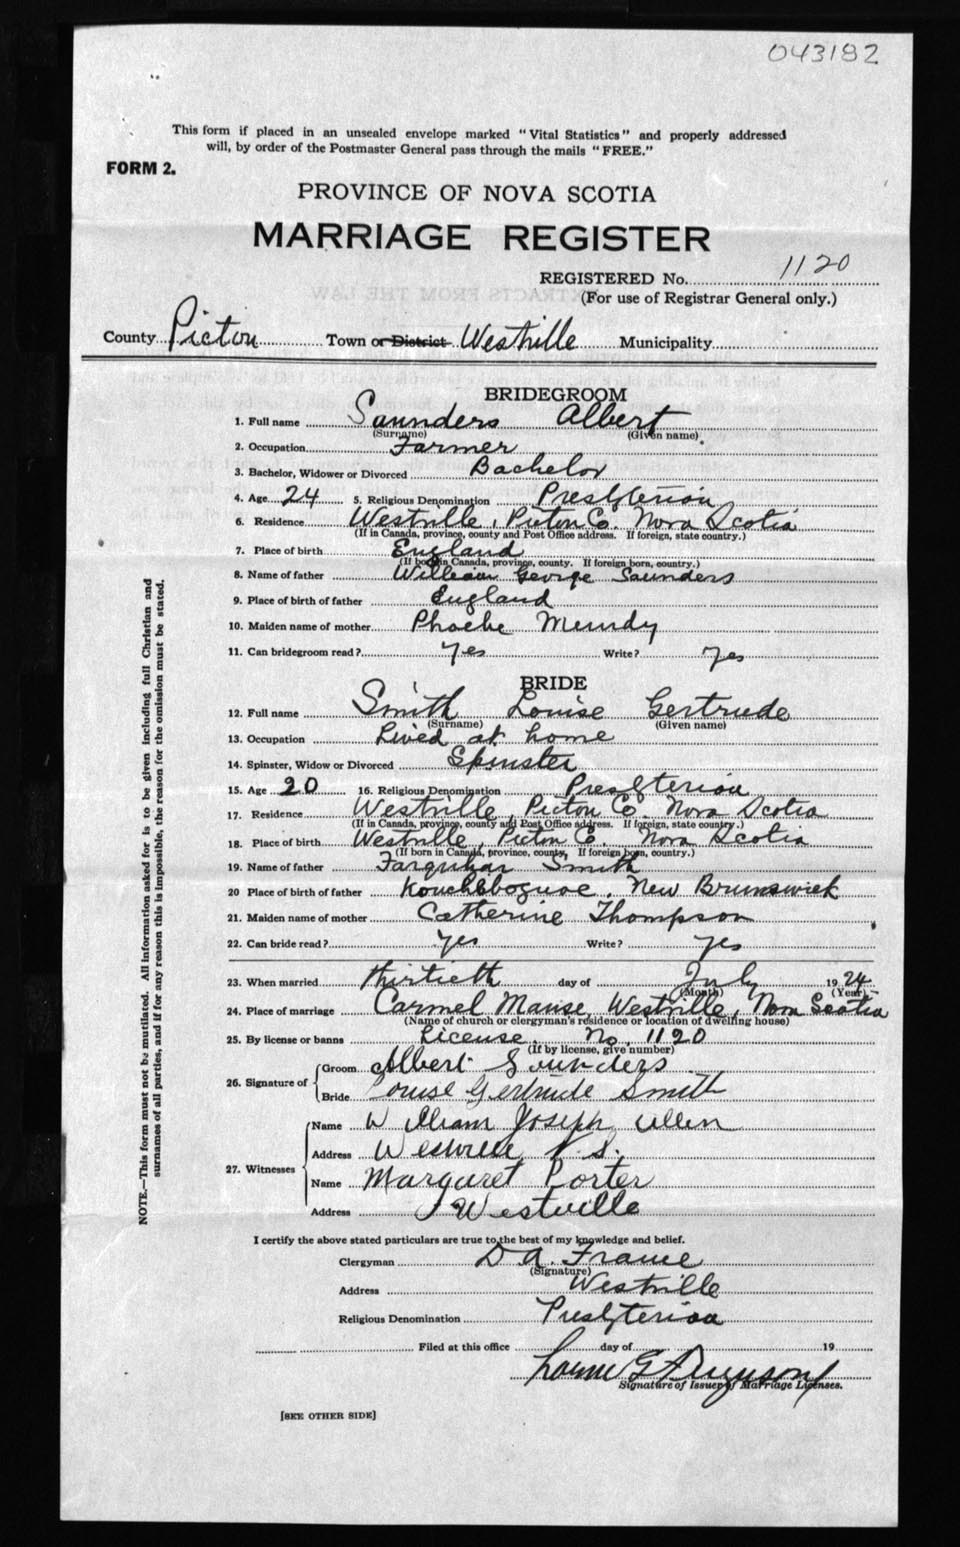 043182
This form if placed in an unsealed envelope marked "Vital Statistics" and properly addressed
will, by order of the Postmaster General pass through the mails "FREE."
FORM 2.
PROVINCE OF NOVA SCOTIA
MARRIAGE REGISTER
REGISTERED No. 1120
(For use of Registrar General only.)
County Pictou Town or District Westville Municipality
BRIDEGROOM
1. Full name Saunders Albert
(Surname) (Given name)
2. Occupation Farmer
3. Bachelor, Widower or Divorced Bachelor
4. Age 24 5. Religious Denomination Presbyterian
6. Residence Westville, Pictou Co. Nova Scotia
(If in Canada, province, county and Post Office address. If foreign, state country.)
7. Place of birth England
(If born in Canada, province, county. If foreign born, country.)
8. Name of father William George Saunders
9. Place of birth of father England
10. Maiden name of mother Phoebe Mundy
11. Can bridegroom read? Yes Write? Yes
BRIDE
12. Full name Smith Louise Gertrude
(Surname) (Given name)
13. Occupation Lived at home
14. Spinster, Widow or Divorced Spinster
15. Age 20 16. Religious Denomination Presbyterian
17. Residence Westville, Pictou Co. Nova Scotia
(If in Canada, province, county and Post Office address. If foreign, state country.)
18. Place of birth Westville, Pictou Co. Nova Scotia
(If born in Canada, province, county, If foreign born, country.)
19. Name of father Farquhar Smith
20 Place of birth of father Kouchiboguac, New Brunswick
21. Maiden name of mother Catherine Thompson
22. Can bride read? yes Write? yes
23. When married thirtieth day of July 1924
(Month) (Year)
24. Place of marriage Carmel Manse, Westville, Nova Scotia
(Name of church or clergyman's residence or location of dwelling house)
25. By license or banns License, No. 1120
(If by license, give number)
26. Signature of Groom Albert Saunders
Bride Louise Gertrude Smith
27. Witnesses Name William Joseph Allen
Address Westville N. S.
Name Margaret Porter
Address Westville
I certify the above stated particulars are true to the best of my knowledge and belief.
Clergyman D A. Frame
(Signature)
Address Westville
Religious Denomination Presbyterian
Filed at this office day of 19
Signature of Issuer of Marriage Licenses.
[SEE OTHER SIDE]
NOTE.—This form must not be mutilated. All information asked for is to be given including full Christian and
surnames of all parties, and if for any reason this is impossible, the reason for the omission must be stated.